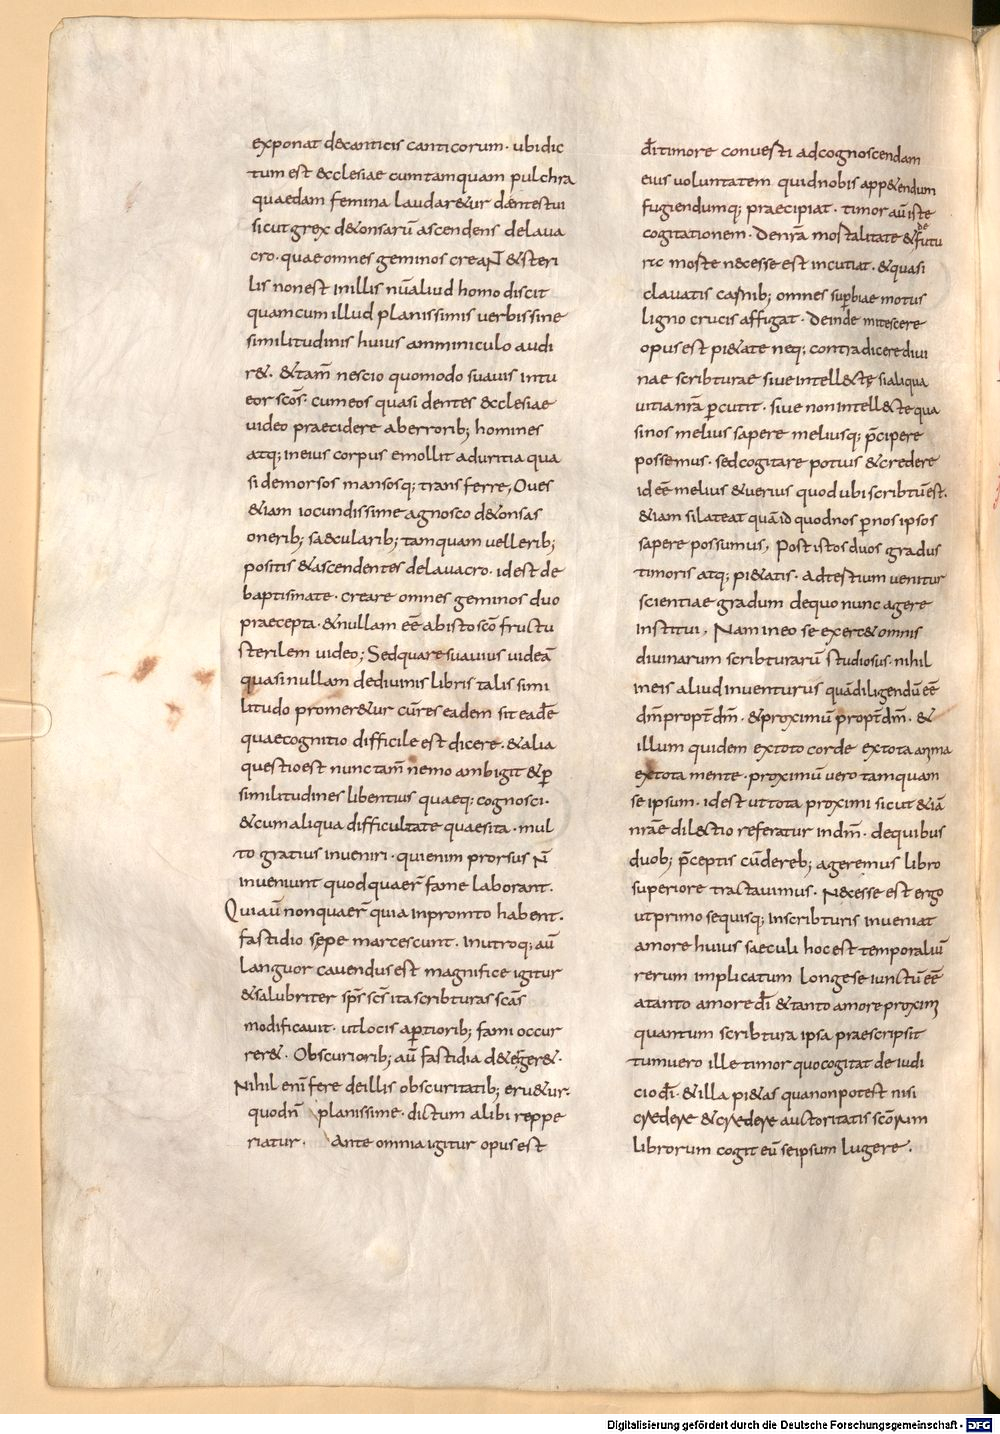 exponat de canticis canticorum · ubi dic
tum est &cclesiae cum tamquam pulchra
quaedam femina laudar&ur dentes tui
sicut grex d&onsarū ascendens de laua
cro · quae omnes geminos creaNT & steri
lis non est in illis nū aliud homo discit
quam cum illud planissimis uerbis sine
similitudinis huius amminiculo audi
r& · & tam̄ nescio quomodo suauius intu
eor scōs · cum eos quasi dentes &cclesiae
uideo praecidere ab errorib; homines
atq; in eius corpus emollit aduritia qua
si demorsos mansosq; transferre, Oues
&iam iocundissime agnosco d&onsas
onerib; saecularib; tamquam uellerib;
positis & ascendentes de lauacro · id est de
baptismate · creare omnes geminos duo
praecepta · & nullam eē ab isto scō fructu
sterilem uideo; Sed quare suauius uideā
quasi nullam de diuinis libris talis simi
litudo promer&ur cū res eadem sit eadē
quae cognitio difficile est dicere · & alia
questio est nunc tam̄ nemo ambigit & ꝑ
similitudines libentius quaeq; cognosci ·
& cum aliqua difficultate quaesita · mul
to gratius inueniri · qui enim prorsus N̄
inueniunt quod quaer̄ fame laborant.
Qui aū non quaer̄ quia in promto habent.
fastidio sepe marcescunt. In utroq; aū
languor cauendus est magnifice igitur
& salubriter sp̄s sc̄s ita scribturas scās
modificauit · ut locis aꝑtiorib; fami occur
rer& · Obscurioribꝫ aū fastidia d&erger& ·
Nihil enī fere de illis obscuritatib; eru&ur ·
quod n̄ planissime · dictum alibi reppe
riatur · Ante omnia igitur opus est
dī timore conuerti ad cognoscendam
eius uoluntatem quid nobis app&endum
fugiendumq; praecipiat · timor aū iste
cogitationem · de nr̄a mortalitate & de futu
ra morte necesse est incutiat · & quasi
clauatis carnib; omnes suꝑbiae motus
ligno crucis affigat · Deinde mitescere
opus est pi&ate neq; contradicere diui
nae scribturae siue intell&ctę si aliqua
uitia nr̄a ꝑcutit · siue non intell&cte qua
si nos melius sapere meliusq; p̄cipere
possemus · sed cogitare potius & credere
id eē melius & uerius quod ubi scribtū est.
&iam si lateat quā id quod nos ꝑ nos ipsos
sapere possumus, Post istos duos gradus
timoris atq; pi&atis · ad tertium uenitur
scientiae gradum de quo nunc agere
institui, Nam in eo se exerc& omnis
diuinarum scribturarū studiosus · nihil
in eis aliud inuenturus quā diligendū eē
dm̄ propt̄ dm̄ · & proximū propt̄ dm̄ · &
illum quidem ex toto corde ex tota anima
ex tota mente · proximū uero tamquam
se ipsum · id est ut tota proximi sicut &iā
nrāe dil&ctio referatur in dm̄ · de quibus
duob; p̄ceptis cū de reb; ageremus libro
superiore tractauimus. Necesse est ergo
ut primo se quisq; in scribturis inueniat
amore huius saeculi hoc est temporaliū
rerum implicatum longe seiunctū eē
a tanto amore dī & tanto amore proximi
quantum scribtura ipsa praescripsit
tum uero ille timor quo cogitat de iudi
cio dī · & illa pi&as qua non potest nisi
credere & credere auctoritatis scōrum
librorum cogit eū se ipsum lugere .
Digitalisierung gefördert durch die Deutsche Forschungsgemeinschaft - DFG